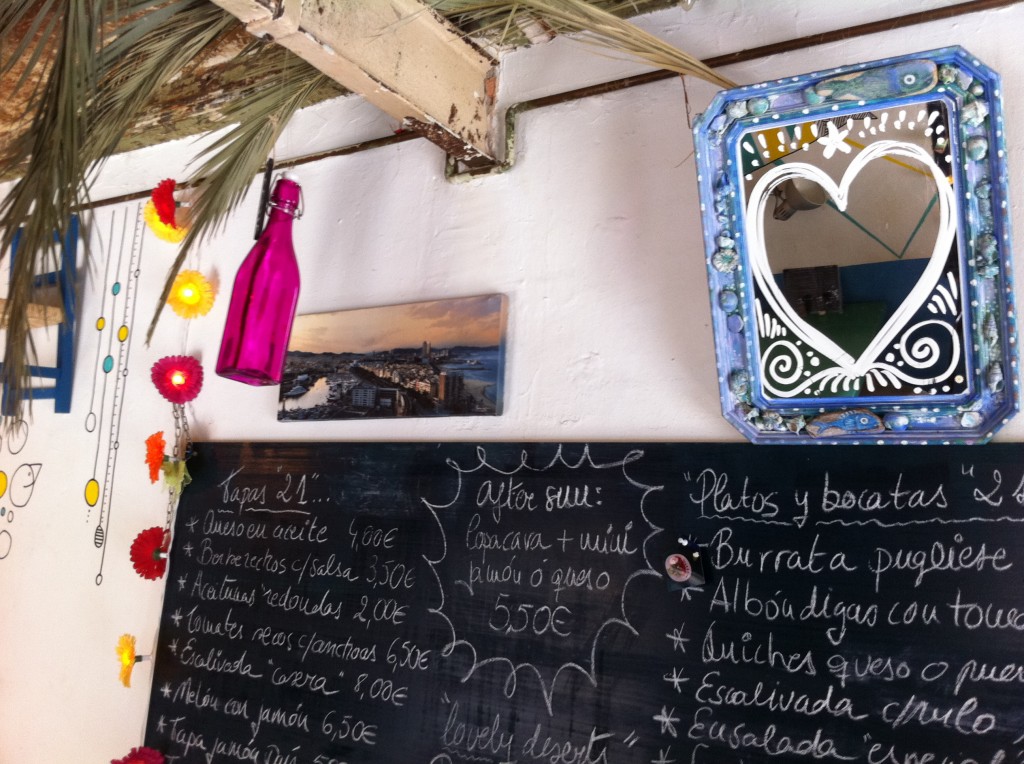 Tapas "21"...
* Queso en aceite 4,00€
* Berberechos c/salsa 3,50€
* Aceitunas "redondas 2,00€
* Tomates secos c/anchoas 6,50€
* Escalivada "casera" 8,00€
* Melón con jamón 6,50€
* Tapa jamón
after sun:
Copa cava + mini
jamón ó queso
5,50€
"lovely deserts"
"Platos y bocatas "2
Burrata pugliese
* Albóndigas con
* Quiches queso o
* Escalivada c/
* Ensalada